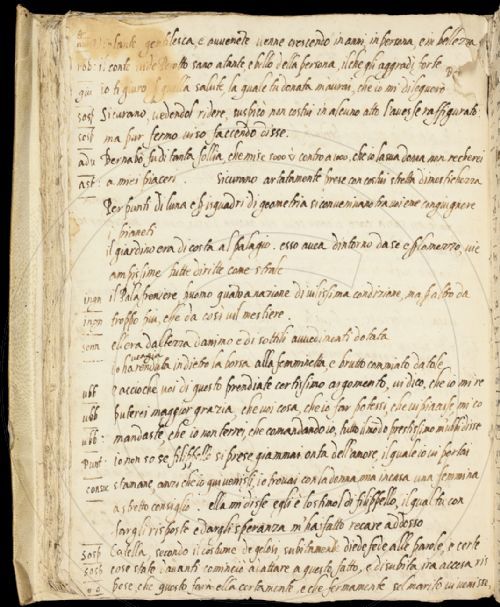 infante gentilesca, e avvenete venne crescendo in anni, in persona, e in bellezza
rob: il conte vide Perotto sano atante e bello della persona, il che gli aggradi forte
giu io ti giuro p quella salute, la quale tu donata m'avrai, che io mi diseguerò
sosp Sicurano, vedendol ridere, suspicò non costui in alcuno atto l'avesse raffigurato:
cosp ma pur fermo viso faccendo disse.
adu Bernabò, fu di tanta follia, che mise 5000 contro a 1000, che io la sua donna non recherei
ast: a miei piaceri. Sicurano artatamente prese con costui stretta dimestichezza
Per punti di luna e p isquadri di geometria si convenivano fra voi e me congiugnere
i pianeti
il giardino era di costa al palagio. esso avea dintorno da se e p lo mezzo, vie
ampissime tutte diritte come strale
ingn il Palafreniere huomo quato a nazione di vilissima condizione, ma p altro da
ingn troppo piu, che da cosi vil mestiere.
senn ell'era d'altezza d'animo e di sottili avvedimenti dotata
veggia
lo ha renduta indietro la borsa alla femminetta, e brutto commiato datole
ubb E accioche voi di questo prendiate certissimo argomento, vi dico, che io mi re
ubb puterei maggior grazia, che voi cosa, che io far potessi, che vi piacesse, mi co
ubb: mandaste, che io non terrei, che comandando io, tutto il mondo prestissimo m'ubbidisse
Punt io non so se filippello si prese giammai onta dell'amore, il quale io vi portai
consu stamane anzi che io qui venissi, io trovai con la donna mia in casa una femmina
a stretto consiglio. ella mi disse egli è costei di filippello, il qual tu con
fargli risposte e dargli speranza m'ha fatto recare addosso
sosp Catella, secondo il costume de gelosi subitamente diede fede alle parole, e certe
sosp cose state davanti cominciò a attare a questo fatto, e di subita ira accesa ris
pose che questo farà ella certamente, e che fermamente se l marito vi venisse